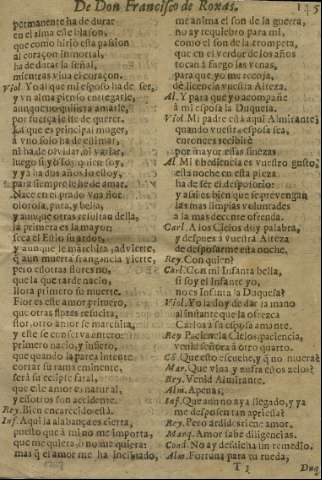 De Don Francisco de Roxas. 145
permanente ha de durar
en el alma este blason,
que como hirio esta passion
al coraçon immortal,
ha de durar la señal,
mientras viua el coraçon.
Viol. Yo al que mi esposo ha de ser,
y vn alma pienso entregarle,
aunque no quisiera amarle,
por fuerça le he de querer.
Lo que es principal moger,
à vno solo ha de estimar,
ni ha de oluidar, ni variar,
luego si yo soy quien soy,
y ya ha dos años lo estoy,
para siempre le he de amar.
Nace en el prado vna flor
olorosa, pura, y bella,
y aunque otras resultan della,
la primera es la mayor:
seca el Estio su ardor,
y aunque le marchita, aduierte,
q̃ aun muerta fragancia vierte,
pero essotras flores no,
que la que tarde naciò,
llora primero su muerte.
Flor es este amor primero,
que otras flores resulta,
flor, otro amor se marchita,
y este se conserua entero:
primero naciò, y infiero,
que quando la parca intente
cortar su rama eminente,
serà su eclipse fatal,
que este amor es natural,
y essotros son accidente.
Rey. Bien encarecido està.
Inf. Aqui la alabança es cierta,
puesto que à mi no me importa,
que me quiera, ò no me quiera:
mas q̃ el amor me ha incitado,
me anima el son de la guerra,
no ay requiebro para mi,
como el son de la trompeta,
que en el verdor de los años
tocan à fuego las venas,
para que yo me recoja,
de licencia vuestra Alteza.
Al. Y para que yo acompañe
à mi esposa la Duquesa.
Viol. Mi padre està aqui Almirante,
quando vuestra esposa sea,
entonces recibirè
por mayor estas finezas
Al. Mi obediencia es vuestro gusto,
esta noche en esta pieza
ha de ser el desposorio:
y assi es bien que se preuengan
las mas limpias voluntades
a la mas decente ofrenda.
Carl. A los Cielos doy palabra,
y despues à vuestra Alteza
de desposarme esta noche.
Rey. Con quien?
Carl. Con mi Infanta bella,
si soy el Infante yo,
no es Infanta la Duquesa?
Viol. Yo la doy de dar la mano
al instante que la ofrezca
Carlos à su esposo amante.
Rey Paciencia, Cielos, paciencia,
venid señora à otro quarto.
Cõ. Que esto escuche, y q̃ no muera?
Mar. Que viua, y sufra estos zelos?
Rey. Venid Almirante.
Alm. Apenas;
Inf. Que aun no aya llegado, y ya
me desposen tan apriessa?
Rey. Pero ardides tiene amor.
Marq. Amor sabe diligencias.
Cond. No ay desdicha sin remedio.
Alm. Fortuna para tu rueda,
T 2 Duq